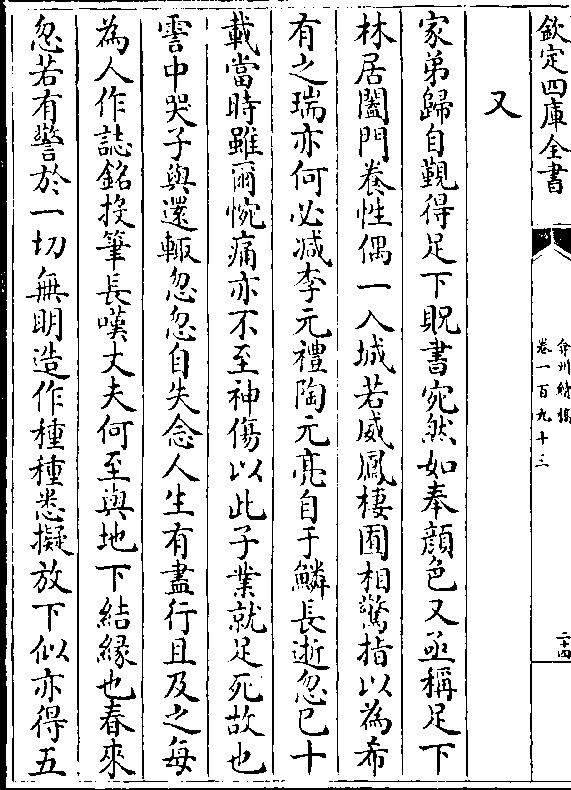 欽定四庫全書
弇州續稿
卷一百九十三
二十四
又
家弟歸自覲得足下貺書宛然如奉顔色又亟稱足下
林居闔門養性偶一入城若威鳳棲囿相驚指以為希
有之瑞亦何必减李元禮陶元亮自于鱗長逝忽已十
載當時雖爾惋痛亦不至神傷以此子業就足死故也
霅中哭子與還輙忽忽自失念人生有盡行且及之每
為人作誌銘投筆長嘆丈夫何至與地下結緣也春來
忽若有警於一切無明造作種種悉擬放下似亦得五